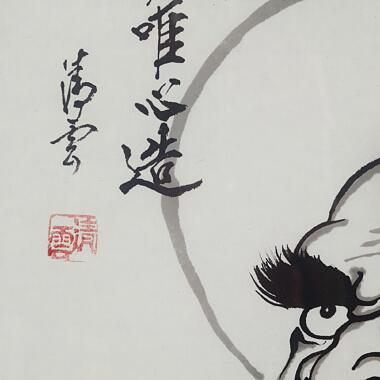 唯心造
清雲
清雲